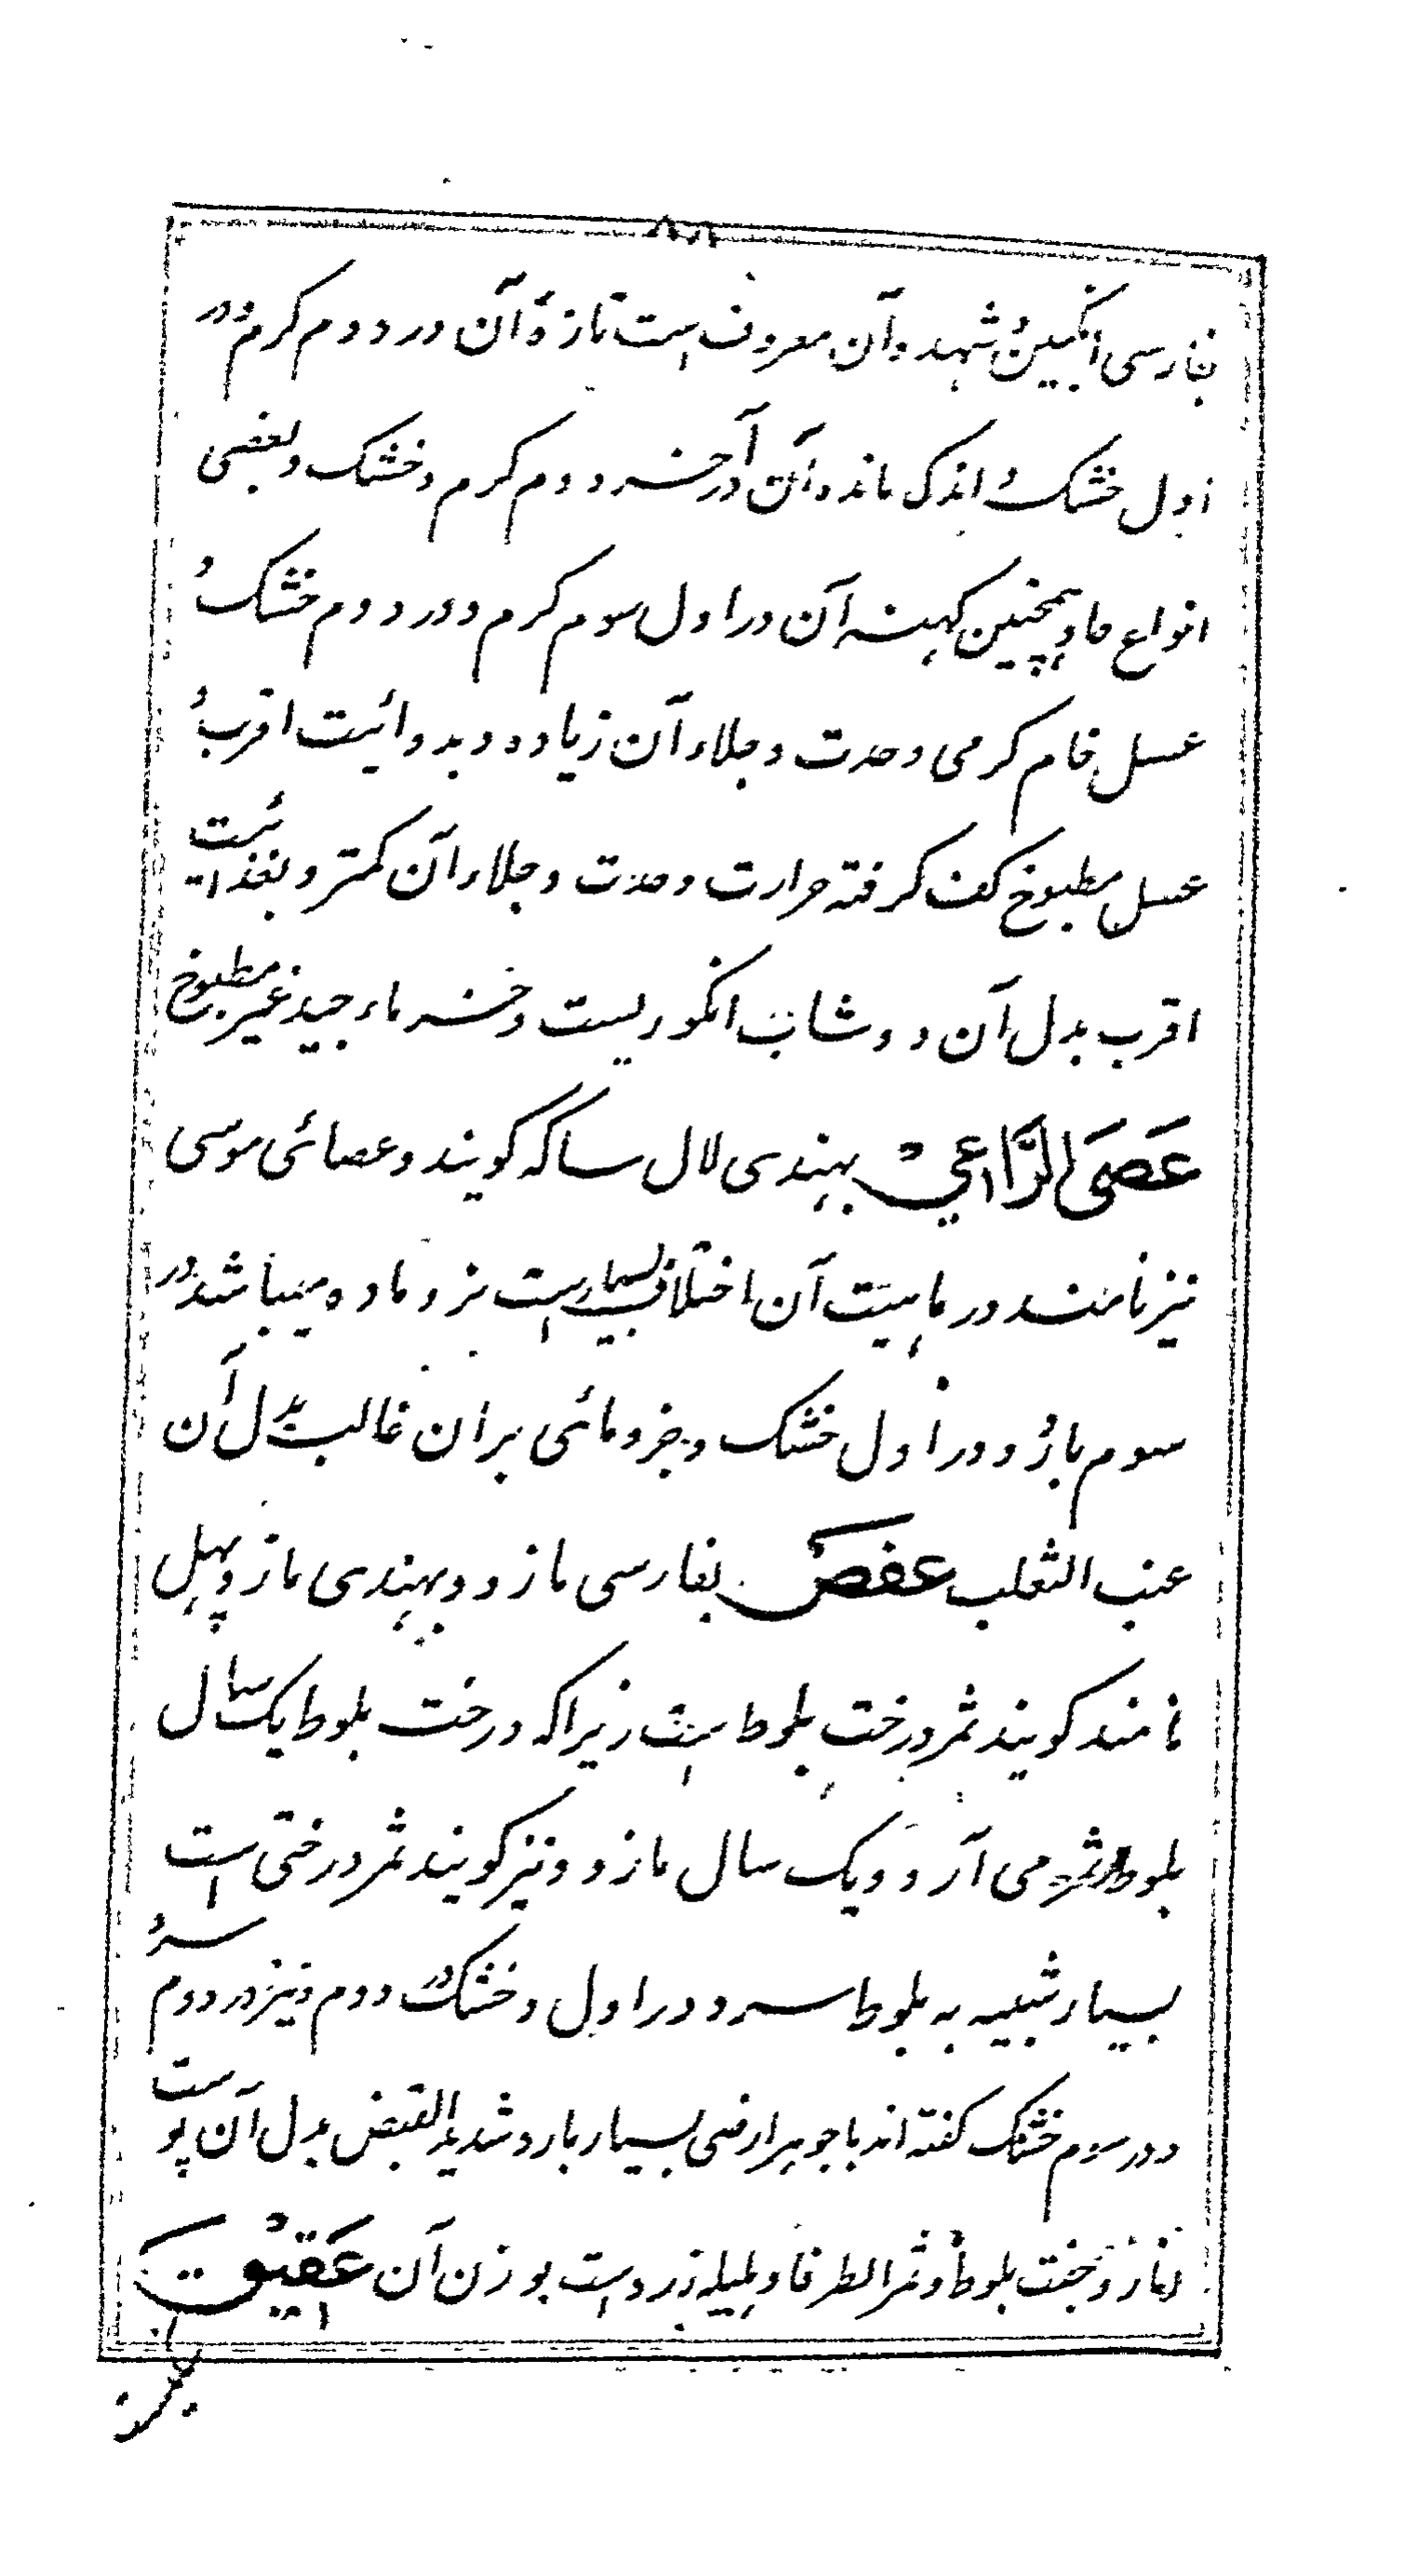 بفارسی انگبین و شهد و آن معروف است تازهٔ آن در دوم گرم و در
اول خشک و اندک مانده آن در آخر دوم گرم و خشک و بعضی
انواع حاد و همچنین کهنه آن در اول سوم گرم و در دوم خشک و
عسل خام گرمی و حدت و جلاء آن زیاده و بدوائیت اقرب و
عسل مطبوخ کف گرفته حرارت و حدت و جلاء آن کمتر و بغذائیت
اقرب بدل آن دوشاب انگوریست و خرماء جید غیر مطبوخ
عَصَی الرَّاعِي بهندی لال ساکه گویند و عصائی موسی
نیز نامند در ماهیت آن اختلاف بسیار است نر و ماده میباشد در
سوم بارد و در اول خشک و جزو مائی بران غالب بدل آن
عنب الثعلب عفص بفارسی مازو و بهندی مازو پهل
نامند گویند ثمر درخت بلوط است زیراکه درخت بلوط یک سال
بلوط ثمر می آرد و یک سال مازو و نیز گویند ثمر درختی است
بسیار شبیه به بلوط سرد در اول و خشک در دوم و نیز در دوم سرد
و در سوم خشک گفته اند با جوهر ارضی بسیار بارد شدید القبض بدل آن پوست
انار و جفت بلوط و ثمر الطرفا و هلیله زرد است بوزن آن عَقِیق